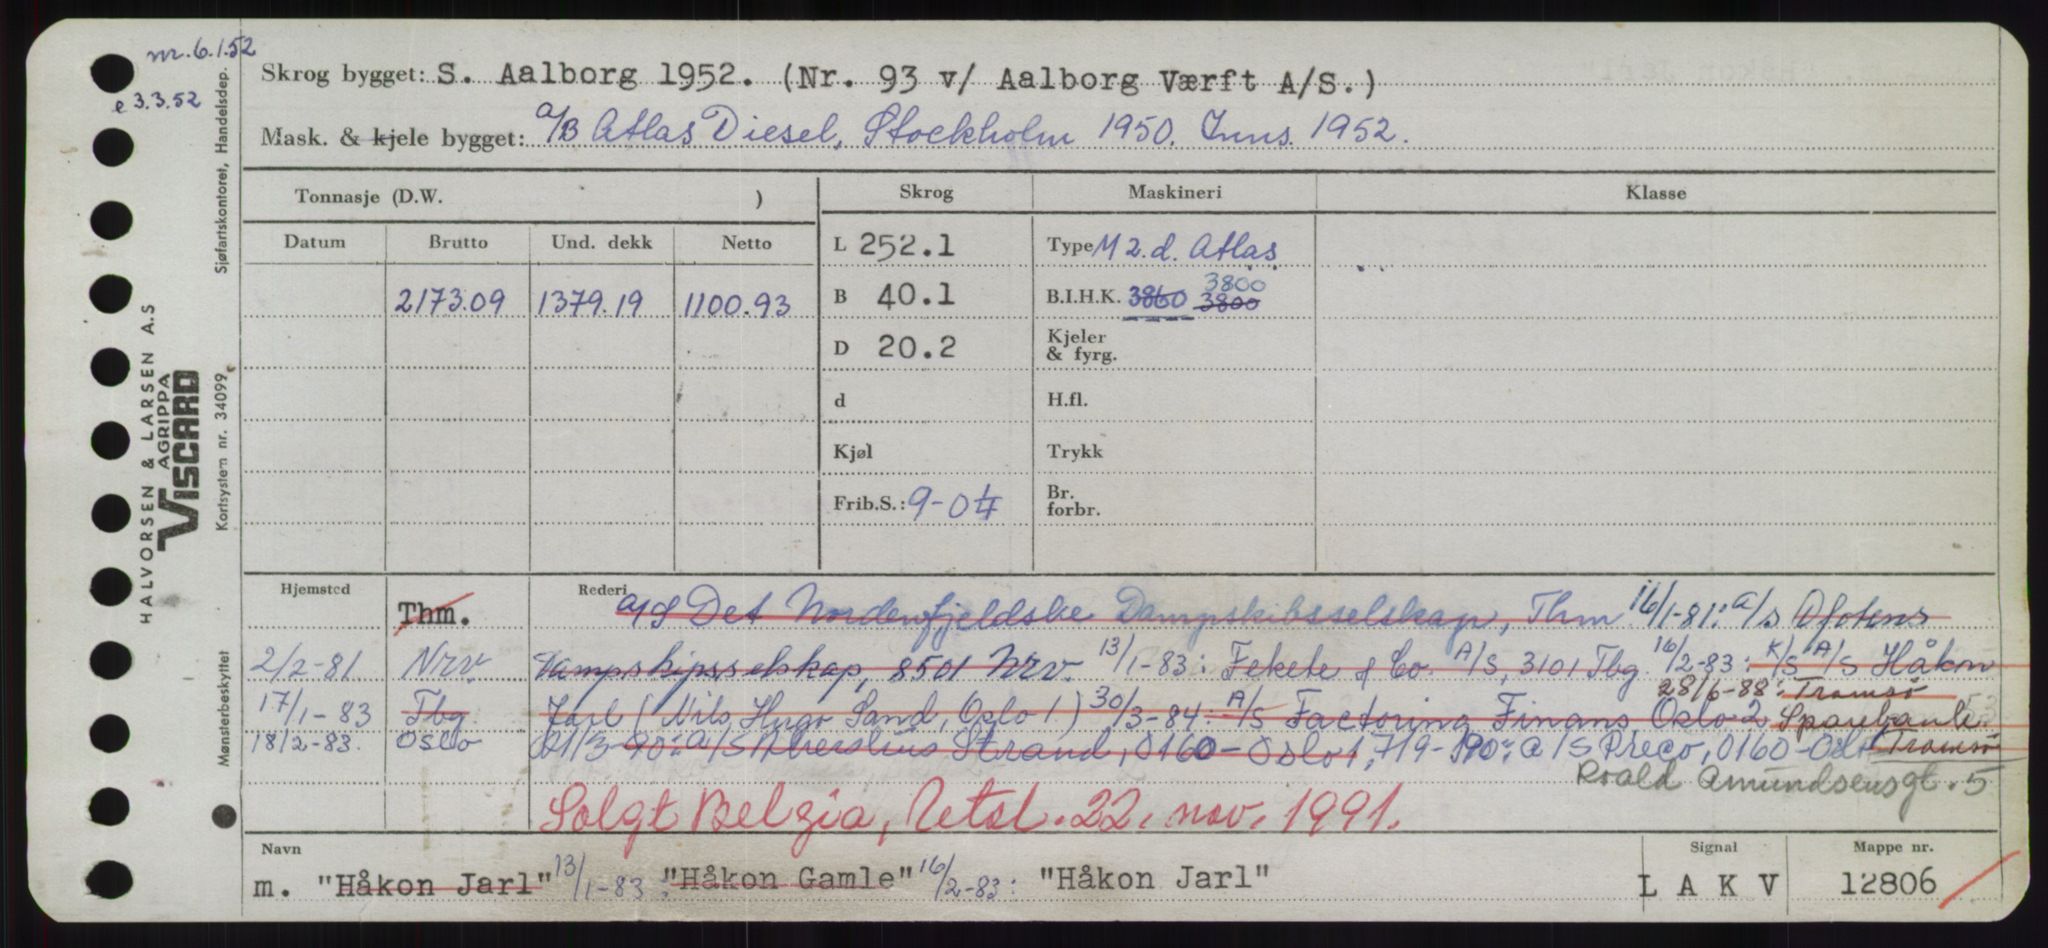 nr. 6.1.52
e 3.3.52
Skrog bygget: S. Aalborg 1952. (Nr. 93 v/ Aalborg Værft A/S.)
Mask. & kjele bygget: A/B Atlas Diesel, Stockholm 1950. Inns. 1952.
Tonnasje (D.W. )
Skrog Maskineri Klasse
Datum Brutto Und. dekk Netto
L 252.1 Type M 2.d. Atlas
2173.09 1379.19 1100.93
B 40.1 B.I.H.K. 3860 3800 3800
D 20.2 Kjeler & fyrg.
d H.fl.
Kjøl Trykk
Frib.S.: 9-0 Br. forbr.
Hjemsted Rederi
Thm. A/S Det Nordenfjeldske Dampskibsselskap, Thm 16/1-81: A/S Ofotens
2/2-81 Nrv. Dampskipsselskap, 8501 Nrv. 13/1-83: Fekete & Co. A/S, 3101 Tbg. 16/2-83: K/S A/S Håkon
17/1-83 Tbg Jarl (Nils Hugo Sand, Oslo 1.) 30/3-84: A/S Factoring Finans, Oslo 2 28/6-88: Tromsø Sparebank
18/2-83. Oslo 21/3-90: A/S Strand, 0160-Oslo 1, 7/9-90: A/S Preco, 0160-Oslo Tromsø
Roald Amundsensgt. 5
Solgt Belgia, Utsl. 22. nov. 1991.
Navn Signal Mappe nr.
m. "Håkon Jarl" 13/1-83: "Håkon Gamle" 16/2-83: "Håkon Jarl" L A K V 12806
HALVORSEN & LARSEN A.S
AGRIPPA
VISCARD
Sjøfartskontoret, Handelsdep.
Kortsystem nr. 34099
Mønsterbeskyttet